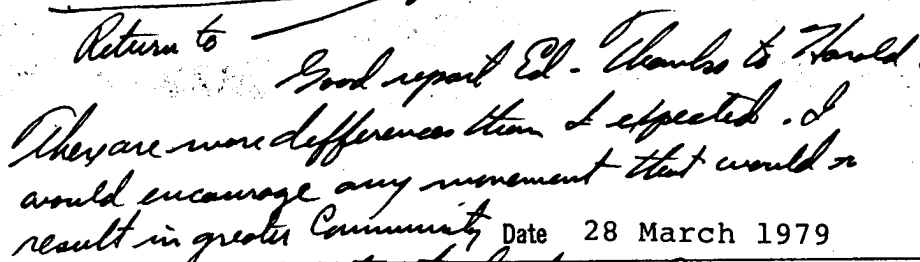 Return to
Good report Ed - Thanks to Harold.
They are more differences than I expected. I
would encourage any movement that would
result in greater Community Date 28 March 1979